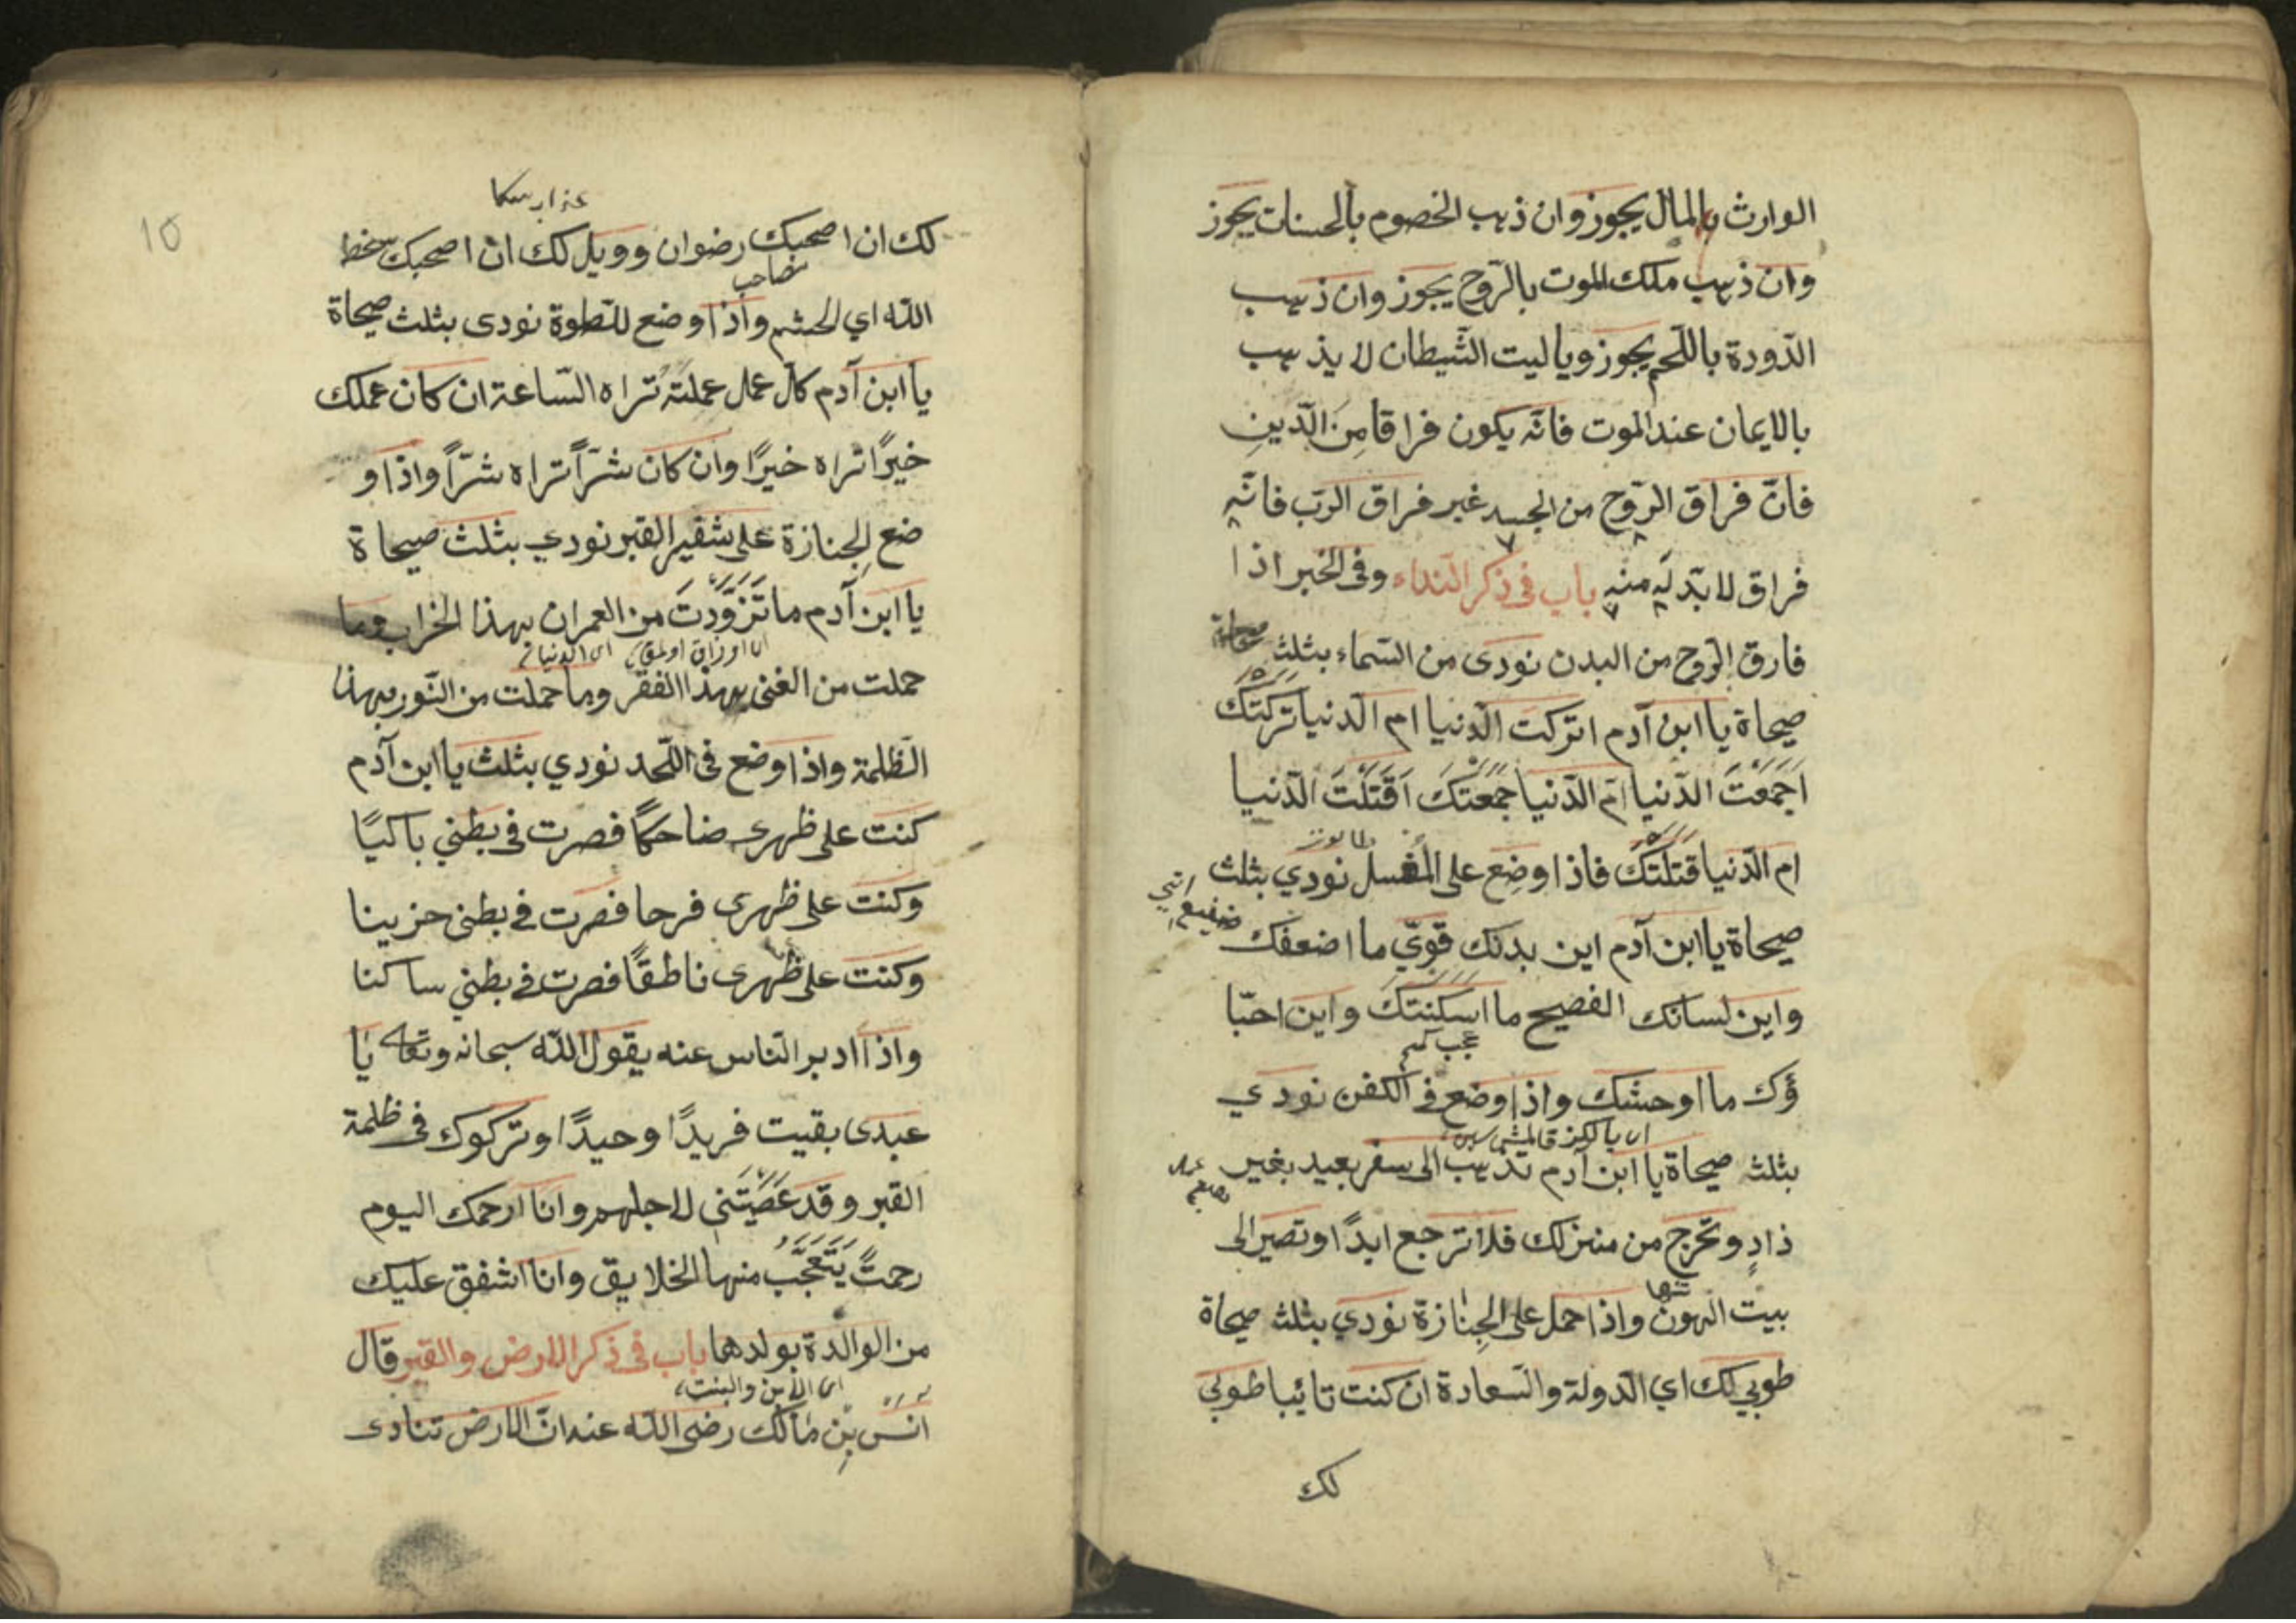 الوارث بالمال يجوز وان ذهب الخصوم بالحسنات يجوز
وان ذهب ملك الموت بالرّوح يجوز وان ذهب
الدّودة باللّحم يجوز وياليت الشّيطان لا يذهب
بالايمان عند الموت فانّه يكون فراقا مِنَ الدّينِ
فانّ فراق الرّوح من الجسد غير فراق الرّب فانّه
فراق لا بدّ له منه باب فى ذكر النداء وفى الخبر اذا
فارق الرّوح من البدن نودى من السّماء بثلث
صيحاة يا ابن آدم اتركتَ الدّنيا ام الدّنيا تركَتْكَ
اَجَمَعْتَ الدّنيا امّ الدّنيا جَمَعَتْكَ اَقَتَلْتَ الدّنيا
ام الدّنيا قتلَتْكَ فاذا وضِع على المُغسل نودي بثلث
صيحاة يا ابن آدم اين بدنك قوىّ ما اضعفك
واين لسانك الفصيح ما اسكنتكَ واين احبّا
ؤك ما اوحشك واذا وضع فى الكفن نودي
بثلث صيحاة يا ابن آدم تذهب الى سفر بعيد بغير
ذادٍ وتخرج من منزلك فلا ترجع ابدًا وتصير الى
بيت الهون واذا حمل على الجِنازة نودي بثلث صيحاة
طوبي لك اي الدّولة والسّعادة ان كنت تائبا طوبي
لك
10
لك ان اصحبك رضوان وويل لك ان اصحبك سخط
مصاحب
اللّه اي الحشم واذا وضع للتطوة نودى بثلث صيحاة
يا ابن آدم كل عمل عملته تراه السّاعة ان كان عملك
خيرًا تراه خيرًا وان كان شرّاً تراه شرّاً واذا و
ضع الجِنازة على شقير القبر نودي بثلث صيحاة
يا ابن آدم ما تَزَوَّدْتَ من العمران بهذا الخراب وما
حملت من الغنى بهذا الفقر وما حملت من النّور بهذا
الظّلمة واذا وضع فى اللّحد نودي بثلث يا ابن آدم
كنت على ظهرى ضاحكًا فصرت فى بطني باكيًا
وكنت على ظهرى فرحا فصرت فى بطنى حزينا
وكنت على ظهرى ناطقًا فصرت فى بطني ساكنا
واذا ادبر النّاس عنه يقول اللّه سبحانه وتعالى يا
عبدى بقيت فريدًا وحيدًا وتركوك فى ظلمة
القبر وقد عَصَيْتَنى لاجلهم وانا ارحمك اليوم
رحمتً يَتَعَجَّبُ منها الخلايق وانا اشفق عليك
من الوالدة بولدها باب فى ذكر الارض والقبر قال
اى الابن والبنت
انس بن مالك رضى اللّه عنه انّ الارض تنادى